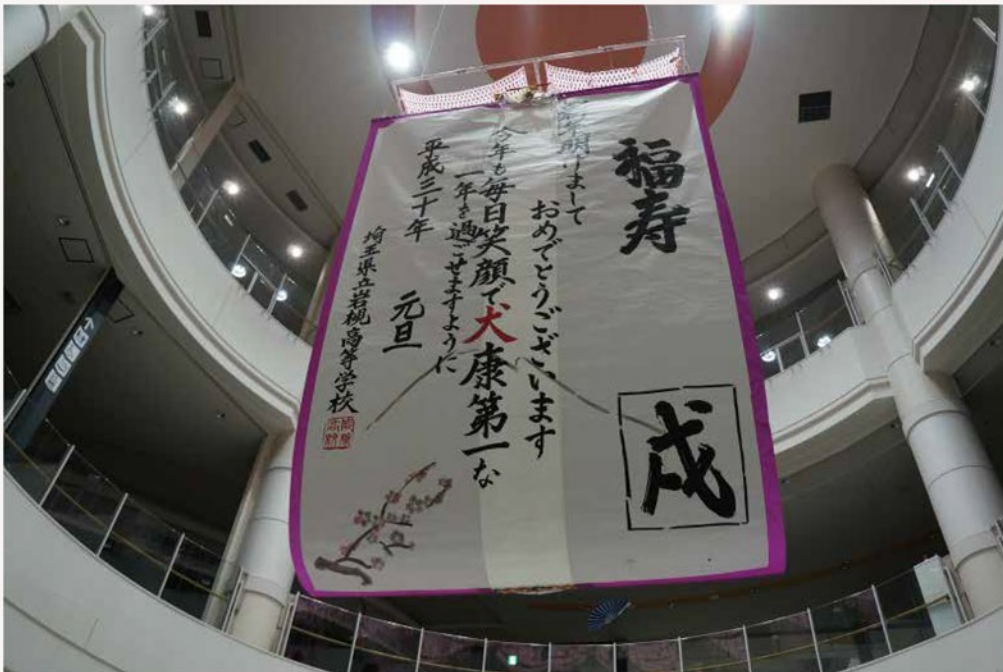 福寿
戌
明けまして
おめでとうございます
今年も毎日笑顔で犬康第一な
一年を過ごせますように
平成三十年 元旦
埼玉県立岩槻高等学校